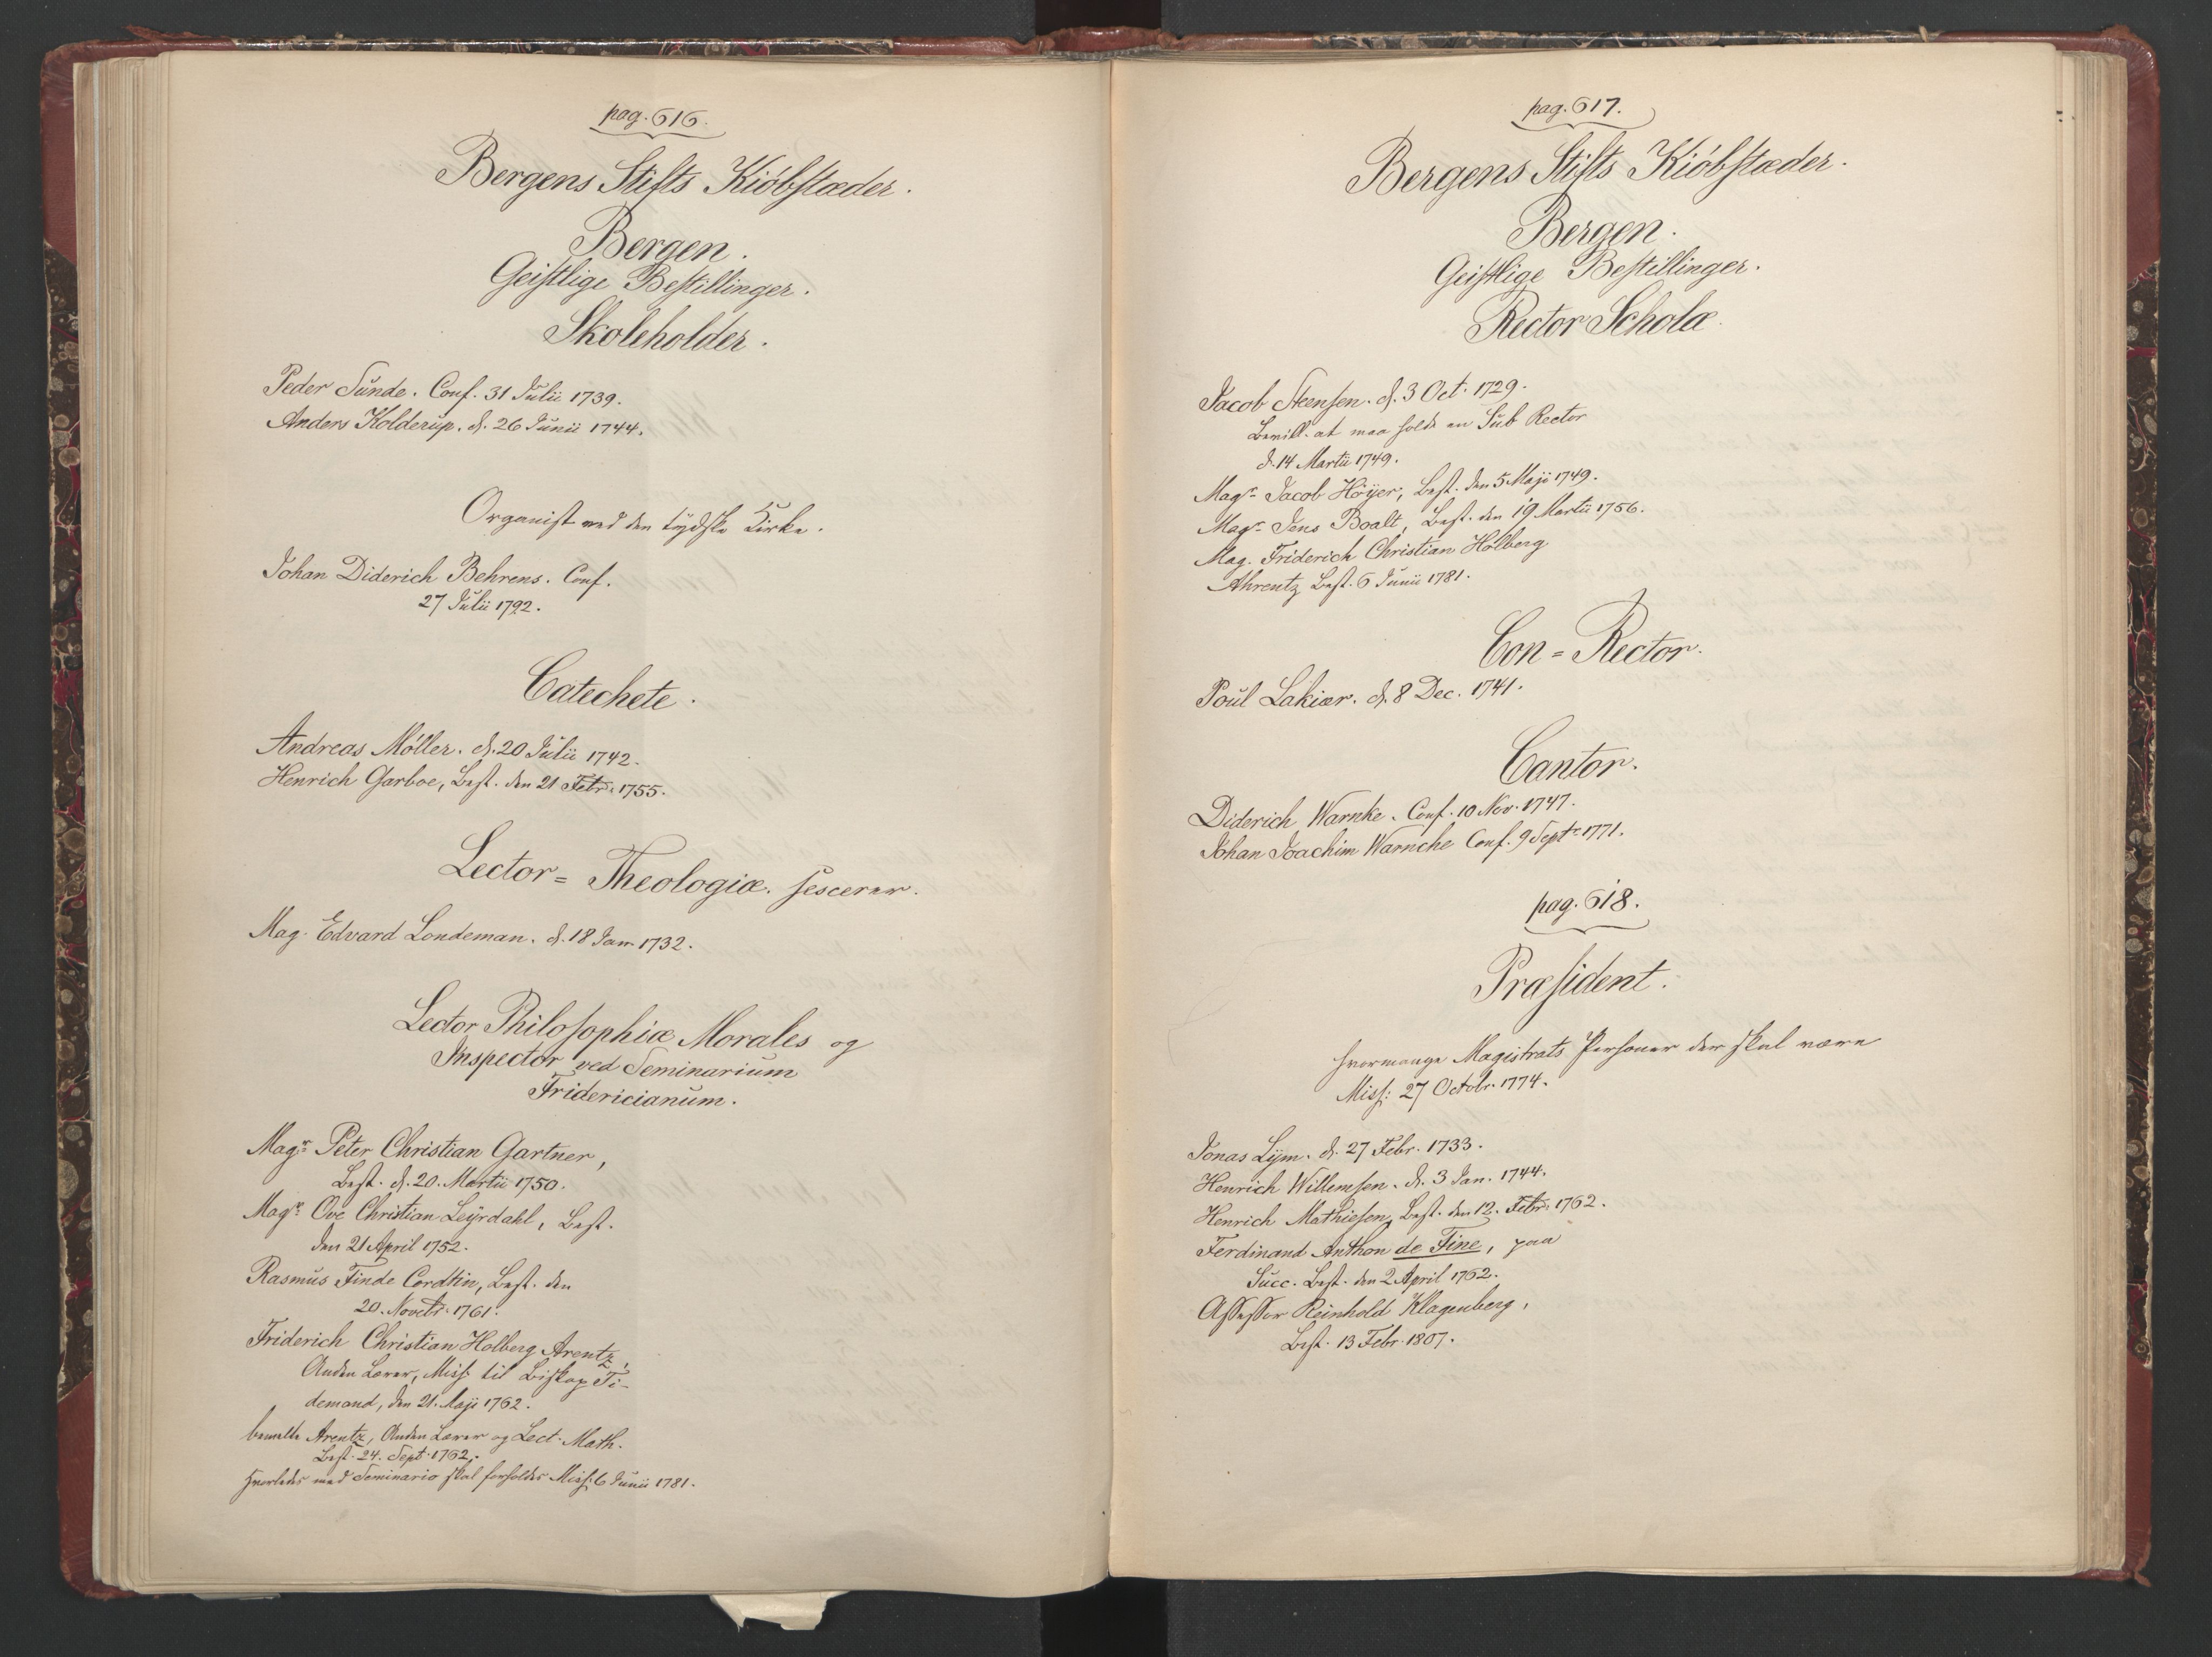 pag. 616.
Bergens Stifts Kiöbstæder.
Bergen.
Geistlige Bestillinger.
Skoleholder.
Peder Sunde. Conf. 31 Julii 1739.
Anders Kolderup. d. 26 Junii 1744.
Organist ved den tydske Kirke.
Johan Diderich Behrens. Conf.
27 Julii 1792.
Catechete.
Andreas Möller. d. 20 Julii 1742.
Henrich Garboe, Best. den 21 Febr. 1755.
Lector = Theologiæ.
Mag. Edvard Londeman. d. 18 Jan. 1732.
Lector Philosophiæ Morales og
Inspector ved Seminarium
Fridericianum.
Magr. Peter Christian Gartner,
Best. d. 20. Martii 1750.
Magr. Ove Christian Leyrdahl, Best.
den 21 April 1752.
Rasmus Finde Cordtin, Best. den
20. Novebr. 1761.
Friderich Christian Holberg Arentz,
Anden Lærer, Miss: til Biskop Ti-
demand, den 21. Maji 1762.
bemelte Arentz, Anden Lærer og Lect. Math.
Best. 24. Sept. 1762.
hvorledes med Seminario skal forholdes Miss: 6 Junii 1781.
pag. 617.
Bergens Stifts Kiöbstæder.
Bergen.
Geistlige Bestillinger.
Rector Scholæ.
Jacob Steensen. d. 3 Oct. 1729.
Bevill. at maa holde en Sub Rector
d. 14 Martii 1749.
Magr. Jacob Höyer, Best. den 5 Maji 1749.
Magr. Jens Boalt, Best. den 19 Martii 1756.
Mag. Friderich Christian Holberg
Ahrentz Best. 6 Junii 1781.
Con = Rector.
Poul Lakier. d. 8 Dec. 1741.
Cantor.
Diderich Warnke. Conf. 10 Nov. 1747.
Johan Joachim Warnche Conf. 9 Septr. 1771.
pag. 618.
Præsident.
hvormange Magistrats Personer der skal være
Miss: 27 Octobr. 1774.
Jonas Lym. d. 27 Febr. 1733.
Henrich Willemsen. d. 3 Jan. 1744.
Henrich Mathiesen, Best. den 12. Febr. 1762.
Ferdinand Anthon de Fine, paa
Succ. Best. den 2 April 1762.
Assessor Reinhold Klagenberg,
Best. 13 Febr. 1807.